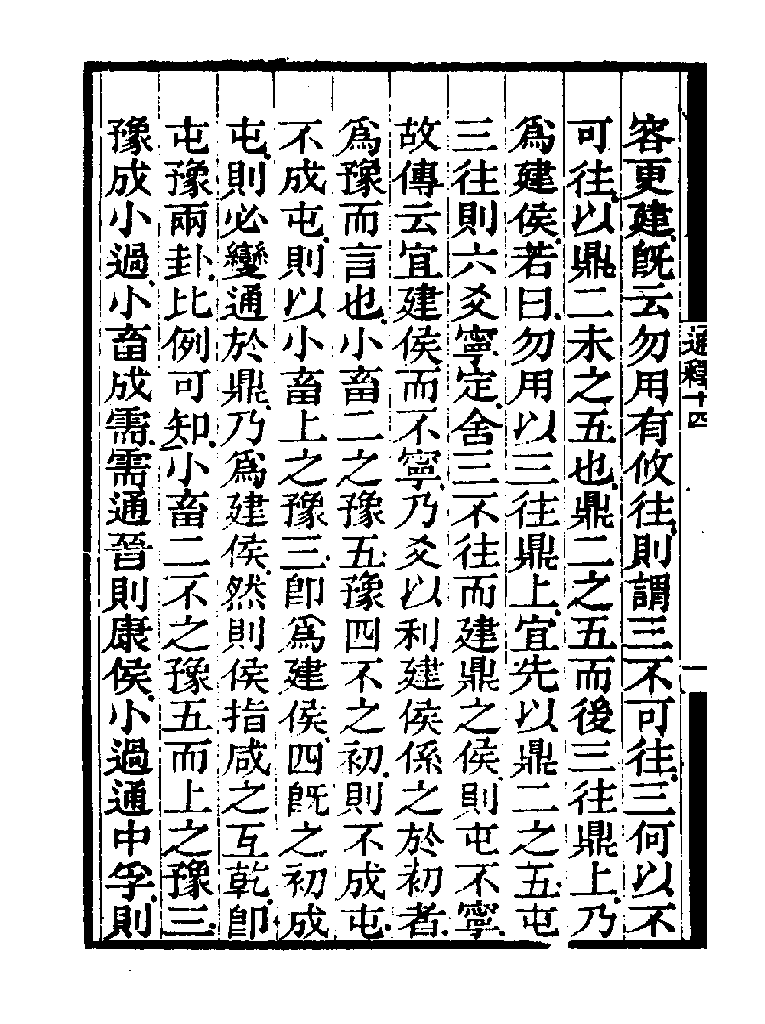 容更建既云勿用有攸往則謂三不可往三何以不
可往以鼎二未之五也鼎二之五而後三往鼎上乃
爲建侯若曰勿用以三往鼎上宜先以鼎二之五屯
三往則六爻寧定舍三不往而建鼎之侯則屯不寧
故傳云宜建侯而不寧乃爻以利建侯係之於初者
爲豫而言也小畜二之豫五豫四不之初則不成屯
不成屯則以小畜上之豫三卽爲建侯四旣之初成
屯則必變通於鼎乃爲建侯然則侯指咸之互乾卽
屯豫兩卦比例可知小畜二不之豫五而上之豫三
豫成小過小畜成需需通晉則康侯小過通中孚則
通釋十四
一